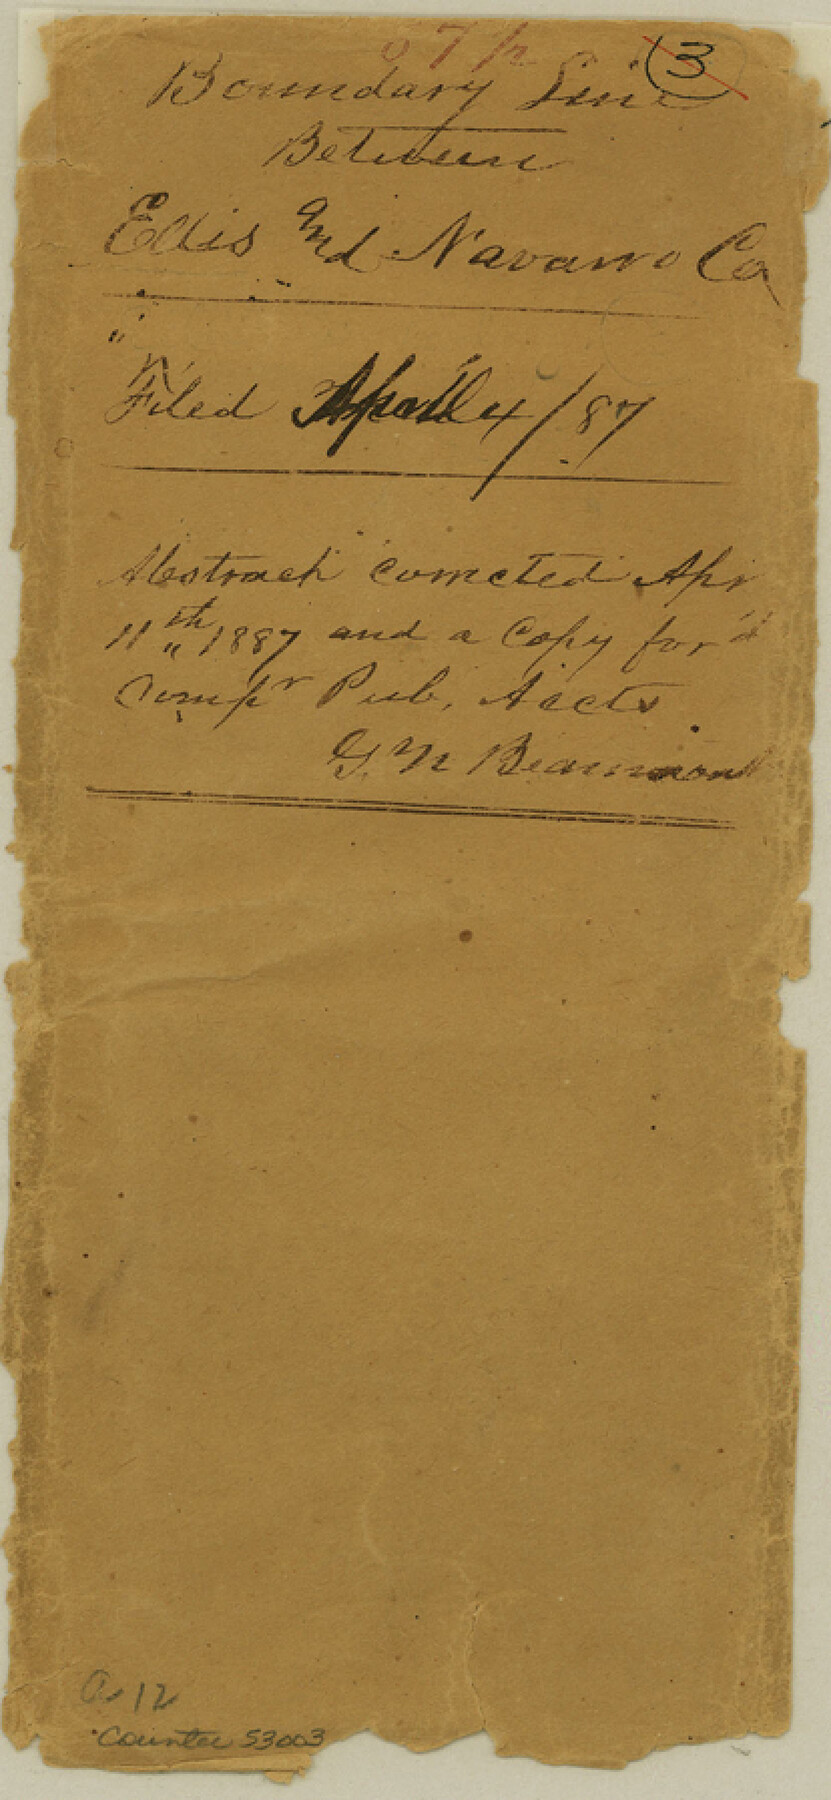 3
Boundary Line
Between
Ellis and Navarro Co
Filed April 4/87
Abstract corrected Apr
11th 1887 and a Copy for'd
Compr Pub. Accts
G. N Beaumont
12
counter 53003